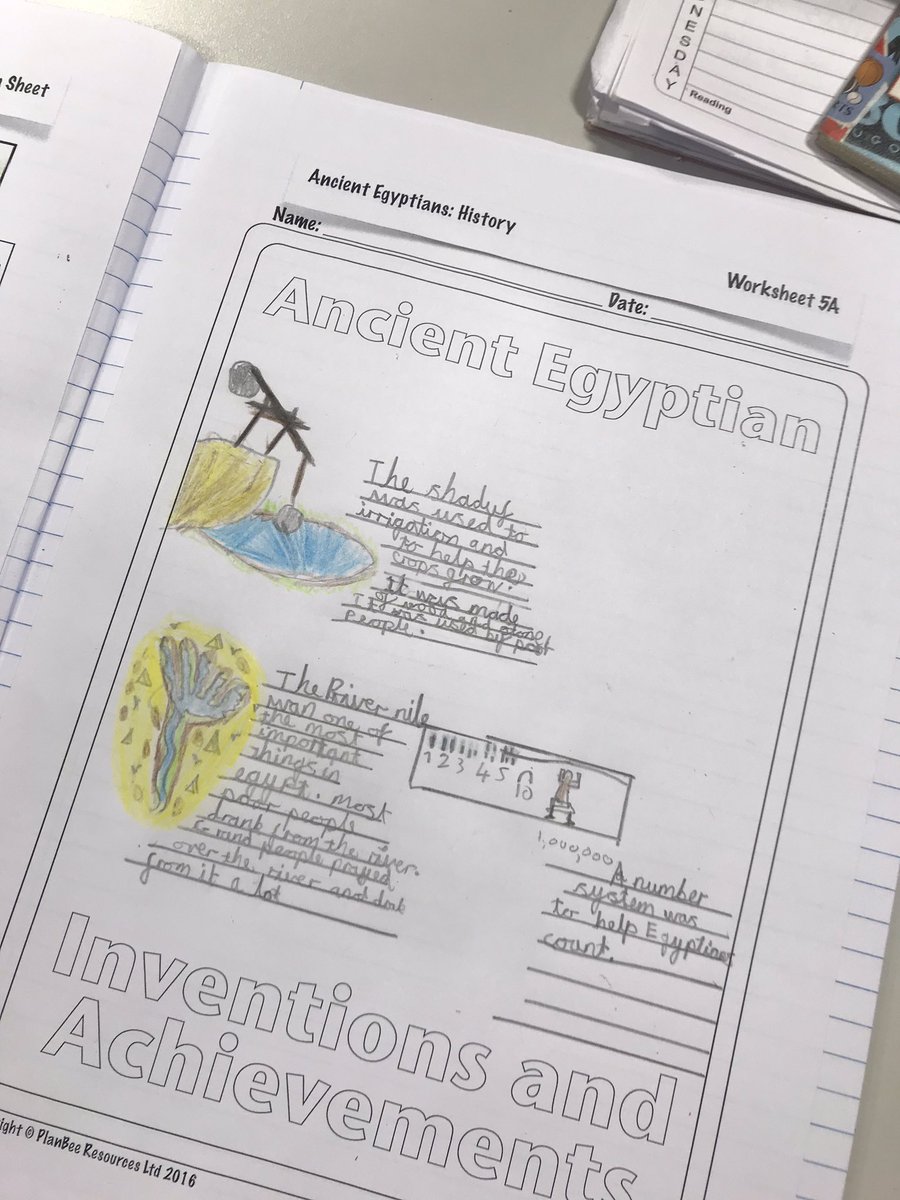 Sheet
NESDAY
Reading
Ancient Egyptians: History
Worksheet 5A
Name:
Date:
Ancient Egyptian
The shaduf
was used to
irrigation and
to help the
crops grow.
It was made
of wood and stone
It was used by poor
people.
The River nile
was one of
the most
important
things in
egypt. Most
poor people
drank from the river.
and people prayed
over the river and drank
from it a lot
1 2 3 4 5 10
1,000,000
A number
system was
to help Egyptians
count.
Inventions and
Achievements
ight © PlanBee Resources Ltd 2016